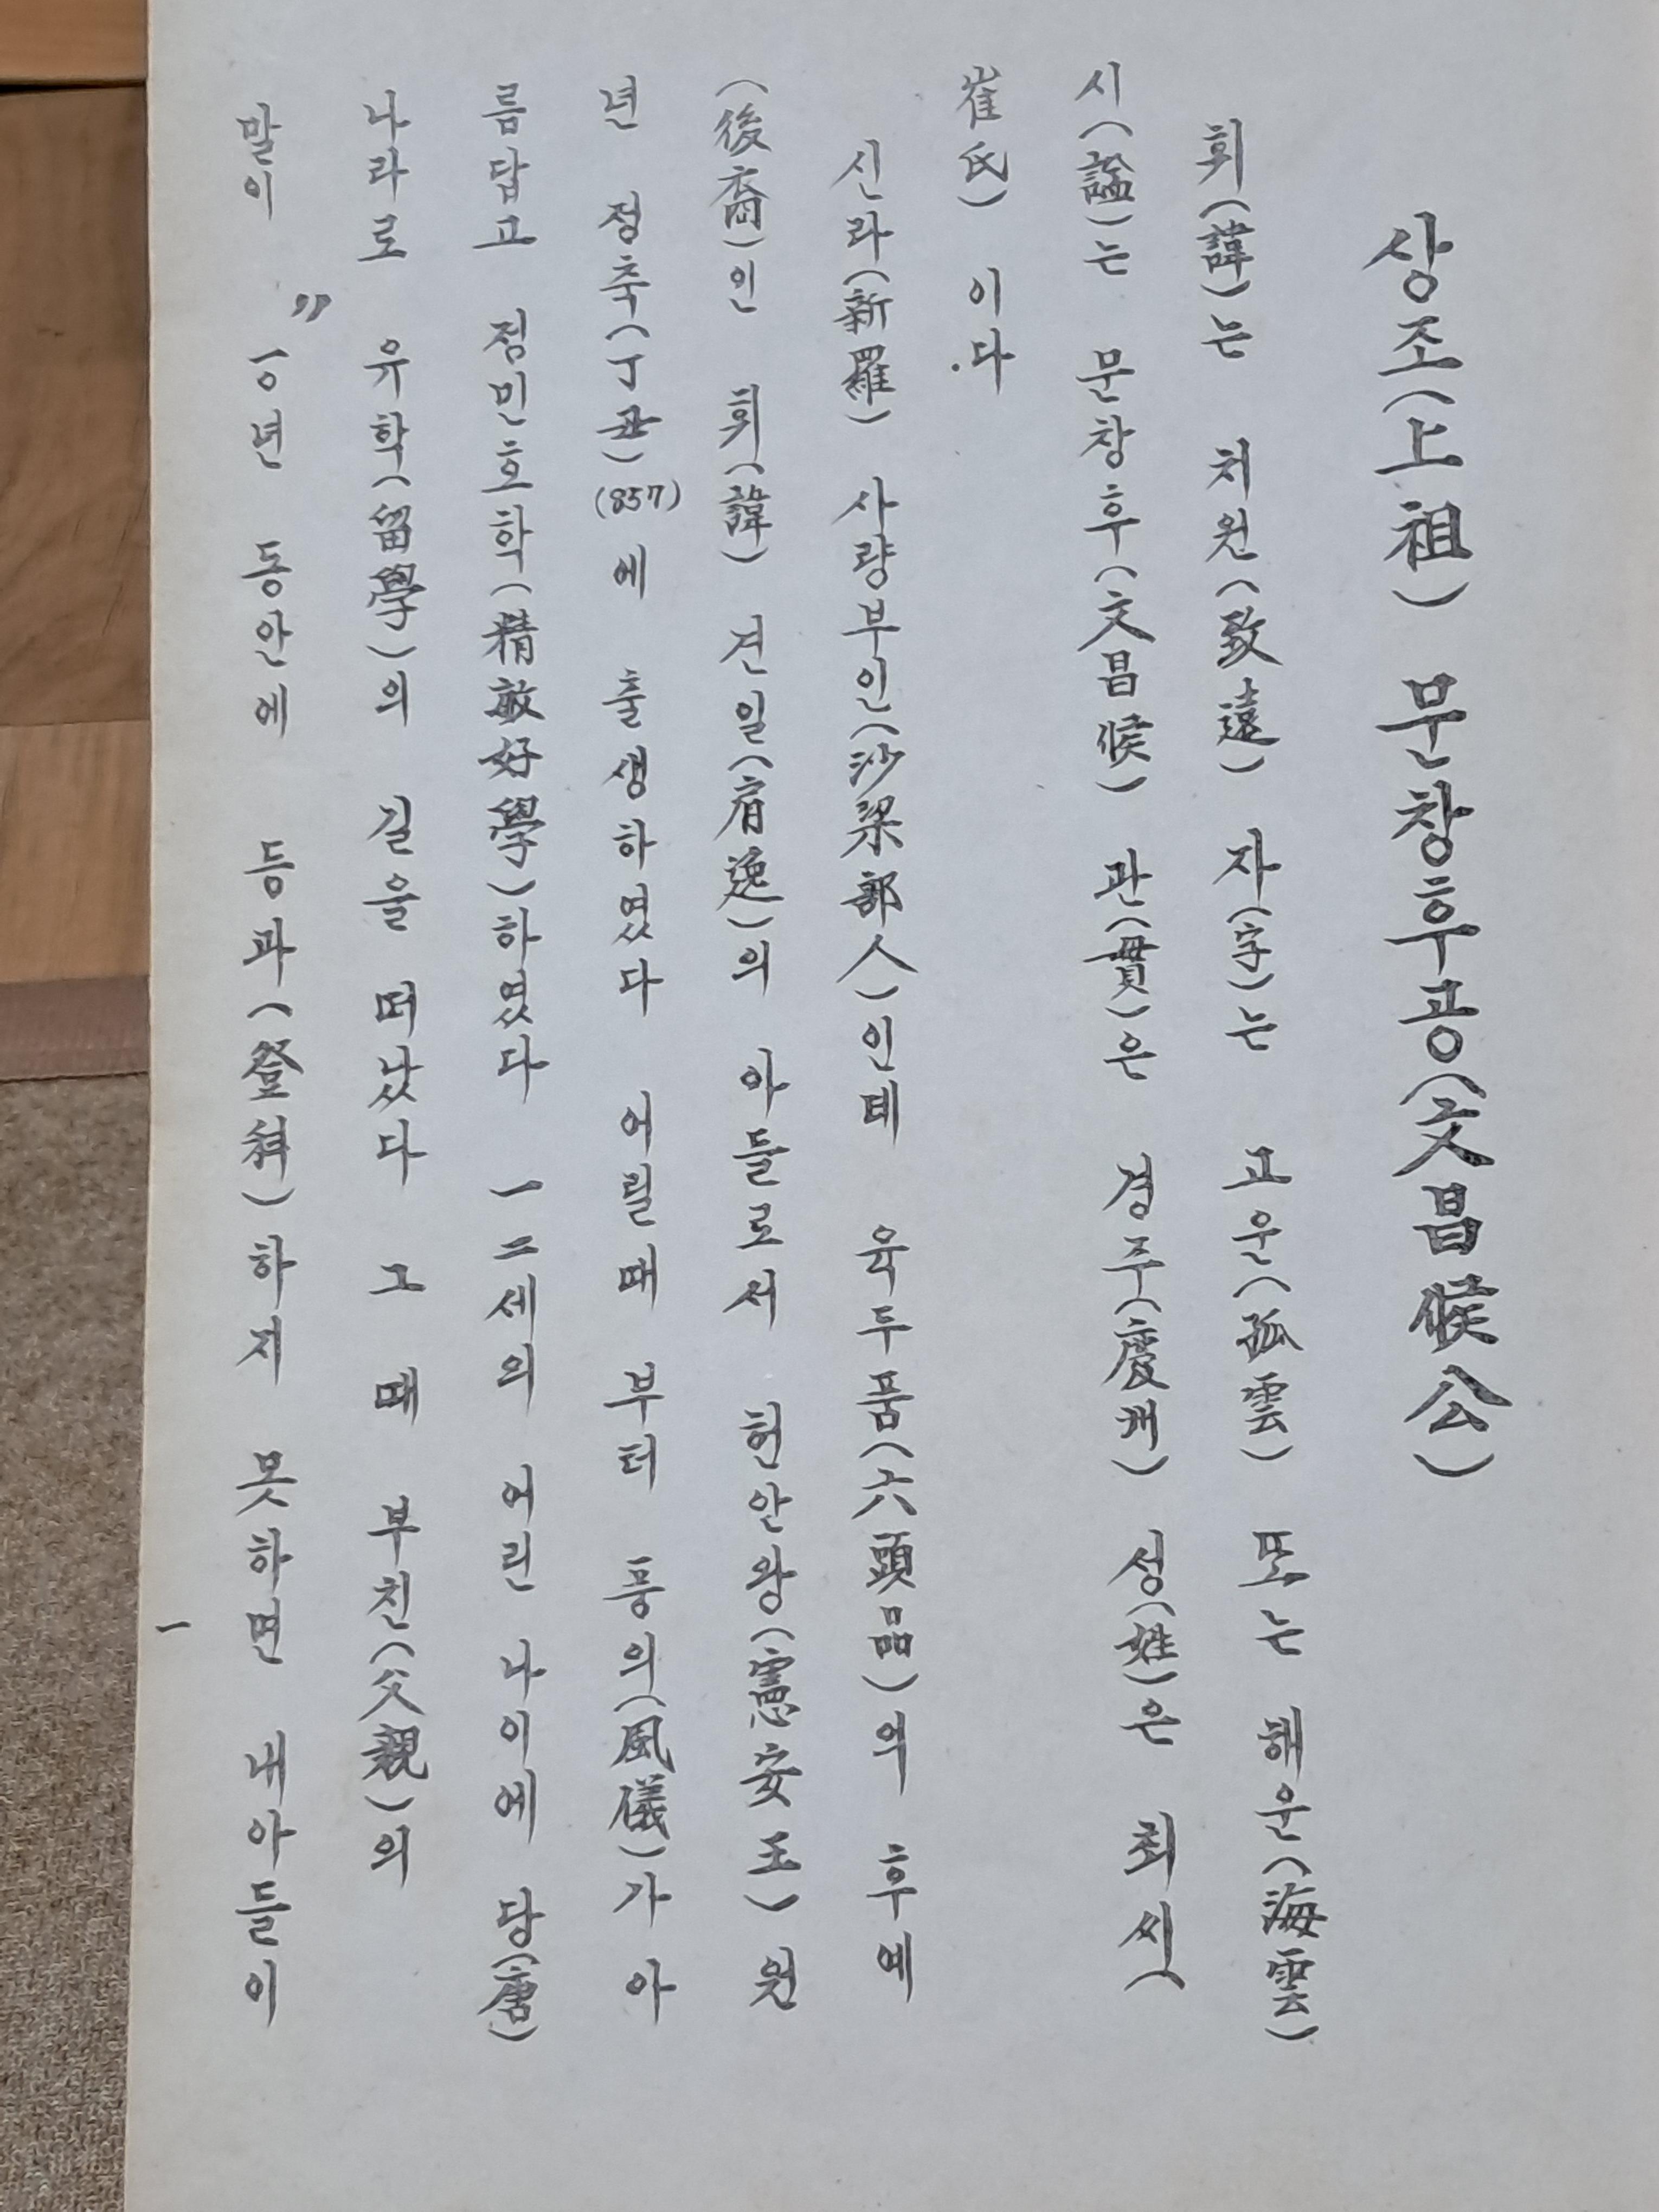 상조(上祖) 문창후공(文昌候公)
휘(諱)는 치원(致遠) 자(字)는 고운(孤雲) 또는 해운(海雲)
시(諡)는 문창후(文昌候) 관(貫)은 경주(慶州) 성(姓)은 최씨(
崔氏) 이다.
신라(新羅) 사량부인(沙梁部人)인데 육두품(六頭品)의 후예
(後裔)인 휘(諱) 견일(肩逸)의 아들로서 헌안왕(憲安王) 원
년 정축(丁丑)(857)에 출생하였다 어릴때 부터 풍의(風儀)가 아
름답고 정민호학(精敏好學)하였다 一二세의 어린 나이에 당(唐)
나라로 유학(留學)의 길을 떠났다 그 때 부친(父親)의
말이 〃一○년 동안에 등과(登科)하지 못하면 내아들이
一